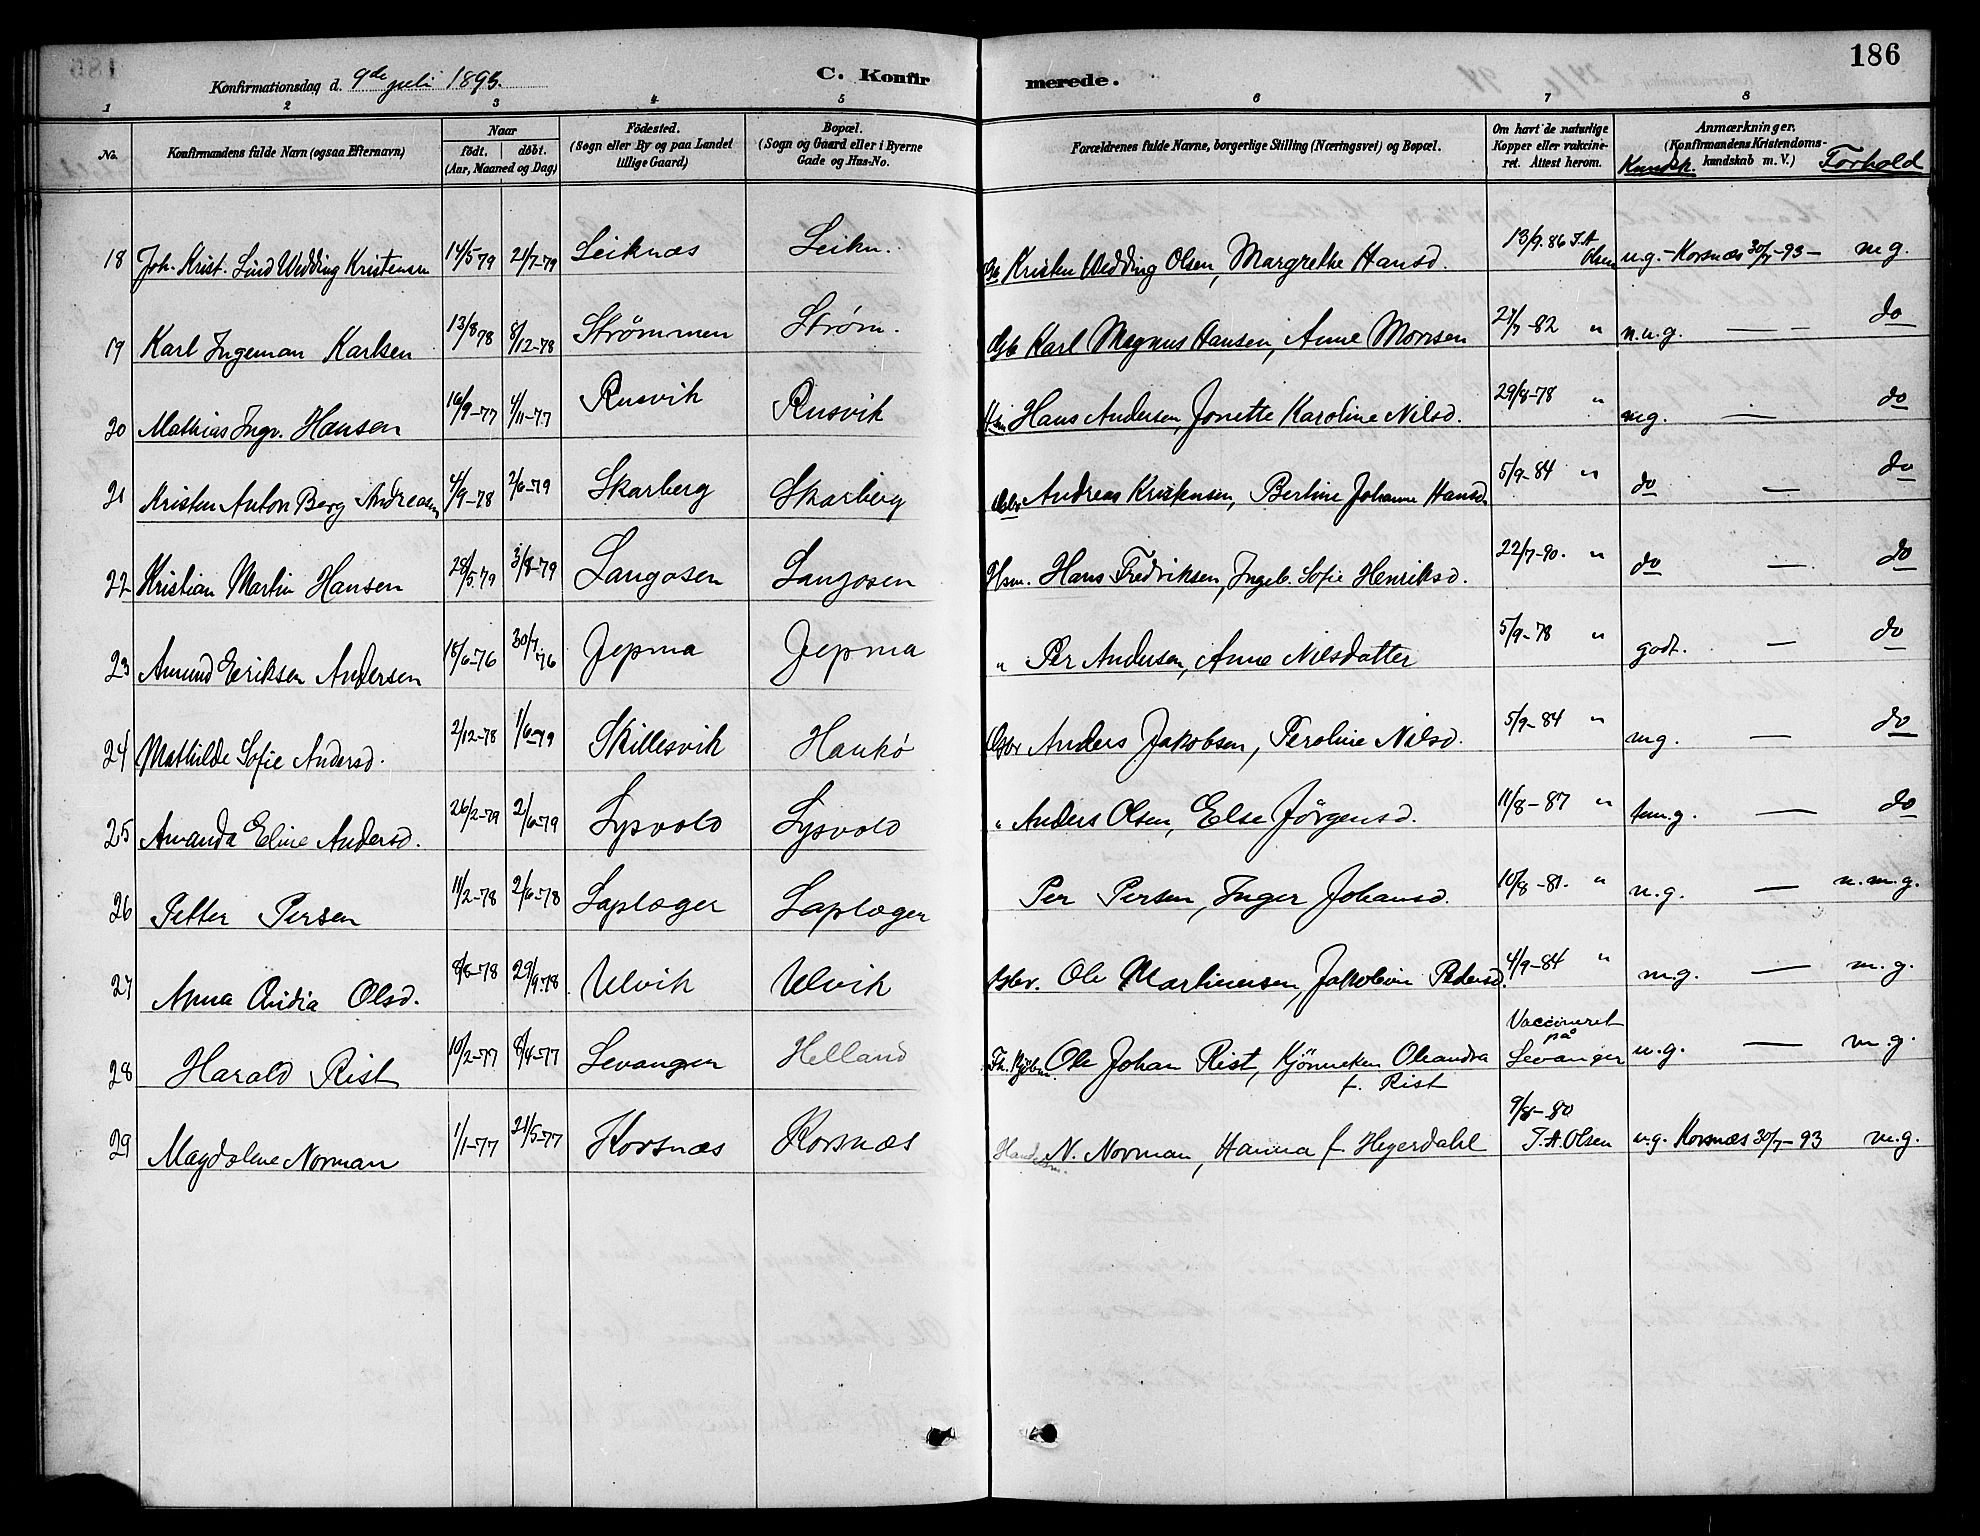 186
Konfirmationsdag d. 9de juli 1893.
C. Konfirmerede.
1 2 3 4 5 6 7 8
No. Konfirmandens fulde Navn (ogsaa Efternavn) Naar født. døbt. (Aar, Maaned og Dag) Fødested. (Sogn eller By og paa Landet tillige Gaard) Bopæl. (Sogn og Gaard eller i Byerne Gade og Hus-No. Forældrenes fulde Navne, borgerlige Stilling (Næringsvei) og Bopæl. Om havt de naturlige Kopper eller vakcineret. Attest herom. Anmærkninger. (Konfirmandens Kristendomskundskab m. V.) Kundsk. Forhold
18 Joh. Krist. Lind Wedding Kristensen 14/5 79 21/7-79 Leiknæs Leikn. Kristen Wedding Olsen, Margrethe Hansd. 13/9. 86 T.A Olsen m.g. - Korsnæs 30/7-93 - m.g.
19 Karl Ingeman Karlsen 13/8 78 8/12-78 Strømmen Strøm. Karl Magnus Hansen, Anne Monsen 21/7-82 " n.m.g. — — do
20 Mathias Ingv. Hansen 16/9-77 4/11-77 Rusvik Rusvik Hsm Hans Andersen, Jonette Karoline Nilsd. 29/8-78 " mg. — do
21 Kristen Anton Berg Andreasen 4/9-78 2/6-79 Skarberg Skarberg Andreas Kristensen, Bertine Johanne Hansd. 5/9-84 " do — do
22 Kristian Martin Hansen 28/5 79 3/8-79 Langosen Langosen Hsm. Hans Fredriksen, Ingeb. Sofie Henriksd. 22/7-90. " do — do
23 Amund Eeriksen Andersen 18/6-76 30/7 76 Jepma Jepma " Per Andersen, Anne Nilsdatter 5/9-78 " godt. — do
24 Mathilde Sofie Andersd. 2/12-78 1/6-79 Skillesvik Hankø Anders Jakobsen, Peroline Nilsd. 5/9-84 " mg. — do
25 Amanda Eline Andersd. 26/2-79 2/6-79 Lysvold Lysvold " Anders Olsen, Else Jørgensd. 11/8-87 " tem.g. — do
26 Petter Persen 11/2-78 2/6-78 Laplæger Laplæger Per Persen, Inger Johansd. 10/8-81. " n.g. — n.m.g.
27 Anna Ovidia Olsd. 8/8-78 29/9-78 Ulvik Ulvik Ole Martinusen, Jakobine Pedersd. 4/9-84 " m.g. — m.g.
28 Harald Rist 10/2-77 8/4-77 Levanger Helland Ole Johan Rist, Kjønneken Oleandra f. Rist Vaccineret på Levanger m.g. — m.g.
29 Magdalene Norman 1/1-77 21/5-77 Korsnæs Korsnæs Handelsm. N. Norman, Hanna f. Heyerdahl 9/8-80 T.A. Olsen m.g. Korsnæs 30/7-93 m.g.